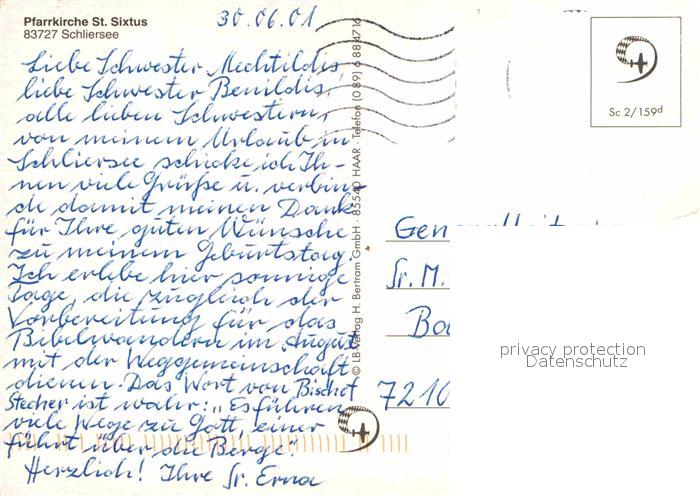 Pfarrkirche St. Sixtus
83727 Schliersee
30.06.01
Liebe Schwester Mechtildis,
liebe Schwester Benildis,
alle lieben Schwestern,
von meinem Urlaub in
Schliersee schicke ich Ih-
nen viele Grüße u. verbin-
de damit meinen Dank
für Ihre guten Wünsche
zu meinem Geburtstag.
Ich erlebe hier sonnige
Tage, die zugleich der
Vorbereitung für das
Bibelwandern im August
mit der Weggemeinschaft
dienen. Das Wort von Bischof
Stecher ist wahr: „Es führen
viele Wege zu Gott, einer
führt über die Berge"
Herzlich! Ihre Sr. Erna
© LB-Verlag H. Bertram GmbH · 85540 HAAR · Telefon (0 89) 6 88 47 16
Sc 2/159d
Sr. M.
7210
privacy protection
Datenschutz